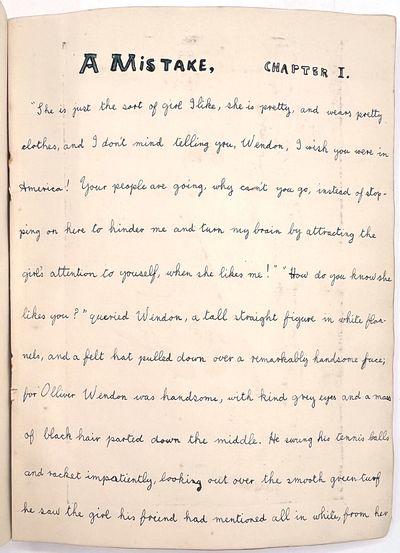 A MISTAKE, CHAPTER I.
"She is just the sort of girl I like, she is pretty, and wears pretty
clothes, and I don't mind telling you, Wendon, I wish you were in
America! Your people are going, why can't you go, instead of stop-
ping on here to hinder me and turn my brain by attracting the
girl's attention to youself, when she likes me!" "How do you know she
likes you?" queried Wendon, a tall straight figure in white flan-
nels, and a felt hat pulled down over a remarkably handsome face;
for Olliver Wendon was handsome, with kind grey eyes and a mass
of black hair parted down the middle. He swung his tennis balls
and racket impatiently, looking out over the smooth green turf
he saw the girl his friend had mentioned all in white, from her